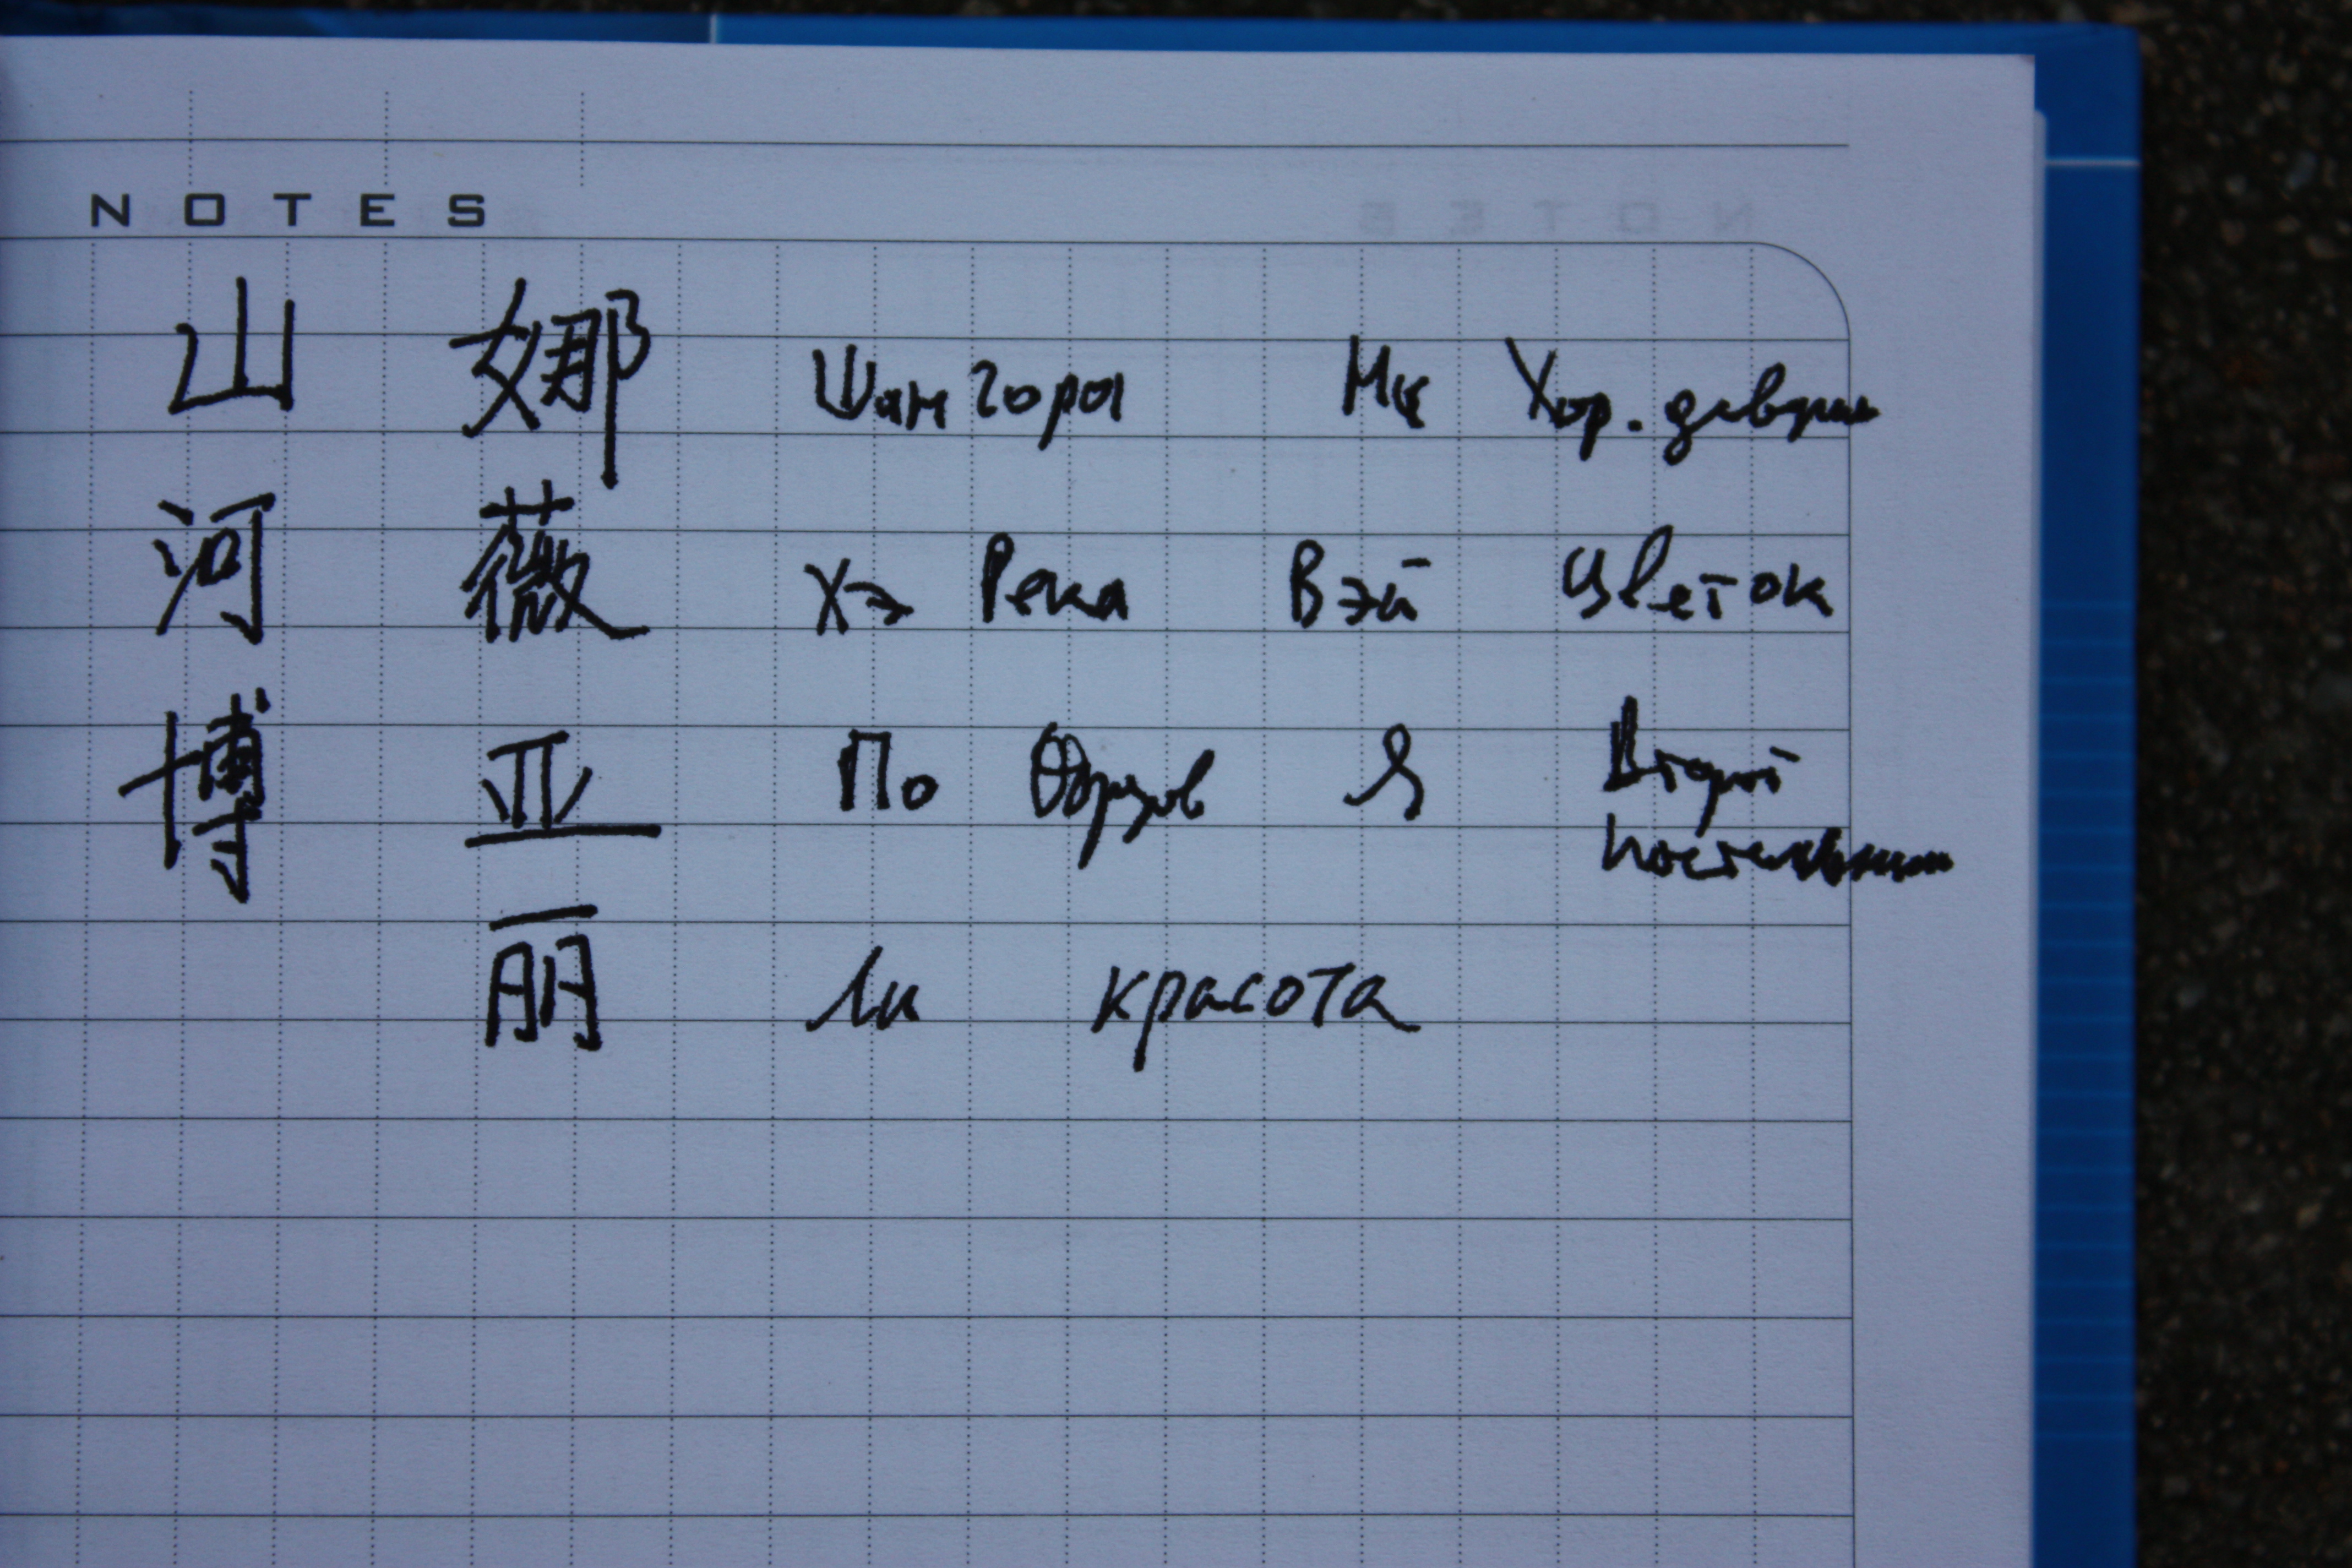 NOTES
山 娜 Шан горы Хор.
河 薇 Хэ Река Вэй Цветок
博 亚 По Я Второй
丽 Ли красота